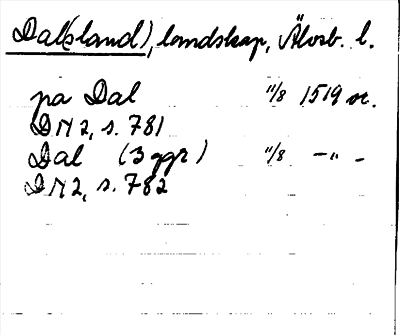 Dal(sland), landskap, Älvsb. l.
på Dal 11/8 1519 or.
DN 2, s. 781
Dal (3 ggr) 11/8 —"—
DN 2, s. 782